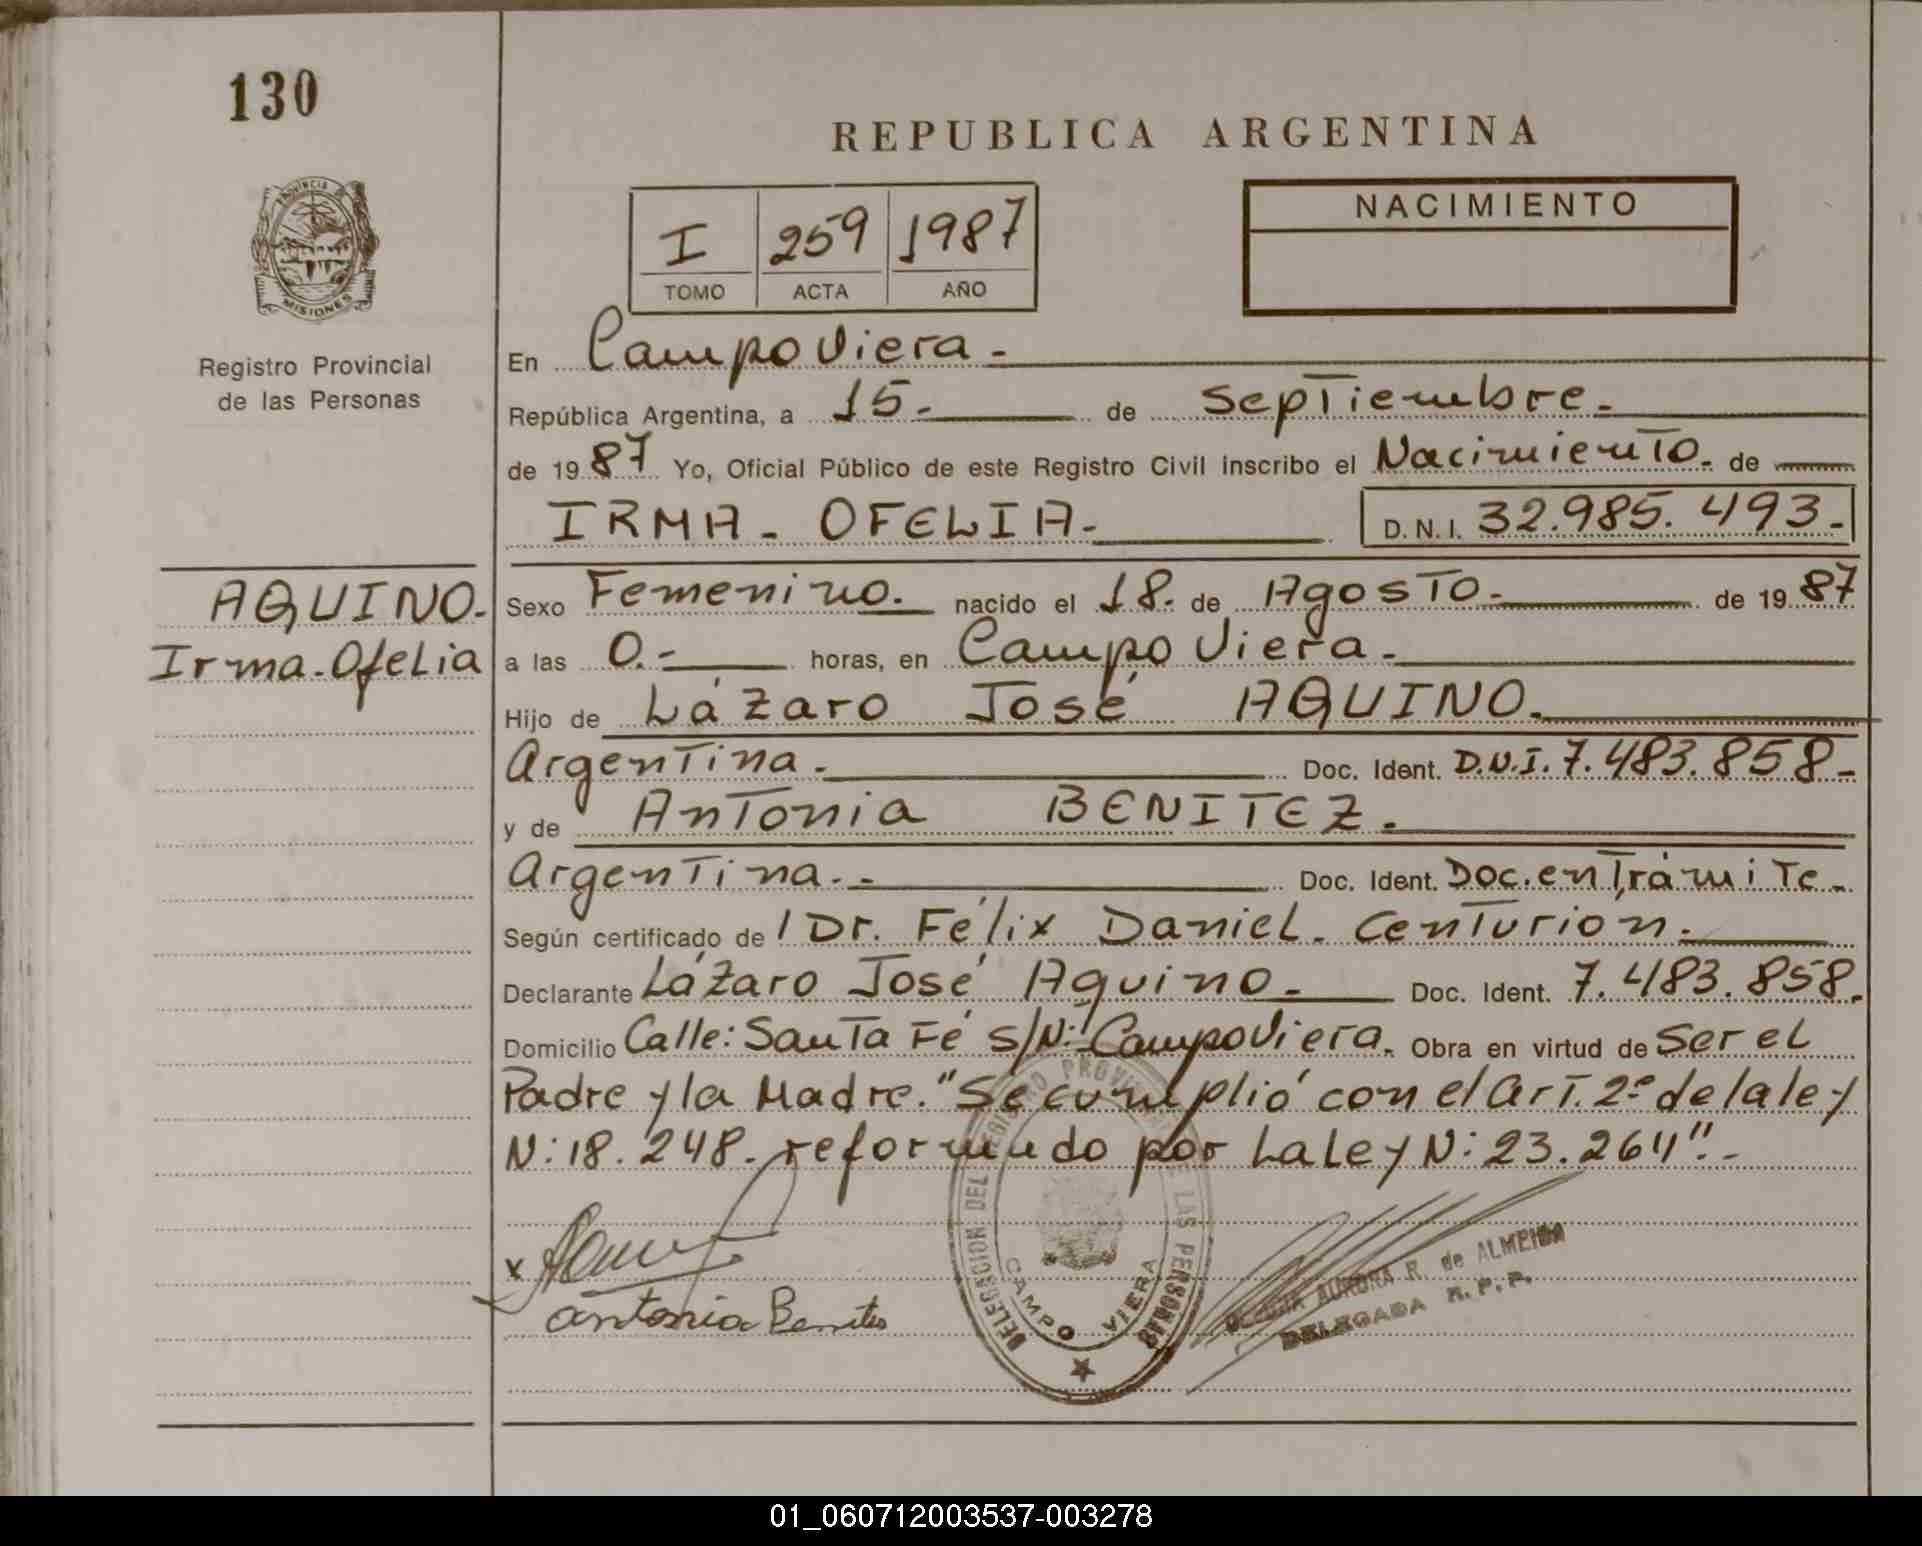 130
REPUBLICA ARGENTINA
PROVINCIA DE
MISIONES
Registro Provincial
de las Personas
I 259 1987
TOMO ACTA AÑO
NACIMIENTO
En Campo Viera.-
República Argentina, a 15.- de Septiembre.-
de 1987 Yo, Oficial Público de este Registro Civil inscribo el Nacimiento.- de
IRMA - OFELIA.- D.N.I. 32.985.493.-
AQUINO.-
Irma-Ofelia
Sexo Femenino.- nacido el 18. de Agosto.- de 1987
a las 0.- horas, en Campo Viera.-
Hijo de Lázaro José AQUINO.-
Argentina.- Doc. Ident. D.N.I. 7.483.858.-
y de Antonia BENITEZ.-
Argentina.-- Doc. Ident. Doc. en Trámite.-
Según certificado de l Dr. Félix Daniel. Centurion.-
Declarante Lázaro José Aquino.- Doc. Ident. 7.483.858.
Domicilio Calle: Santa Fé S/N: Campo Viera. Obra en virtud de Ser el
Padre y la Madre. "Se cumplió con el Art. 2º de la ley
N: 18.248. reformado por La Ley N: 23.264".-
x
antonia Benites
DELEGACION DEL REGISTRO PROVINCIAL DE LAS PERSONAS
CAMPO VIERA
AURORA R. de ALMEIDA
DELEGADA R.P.P.
01_060712003537-003278